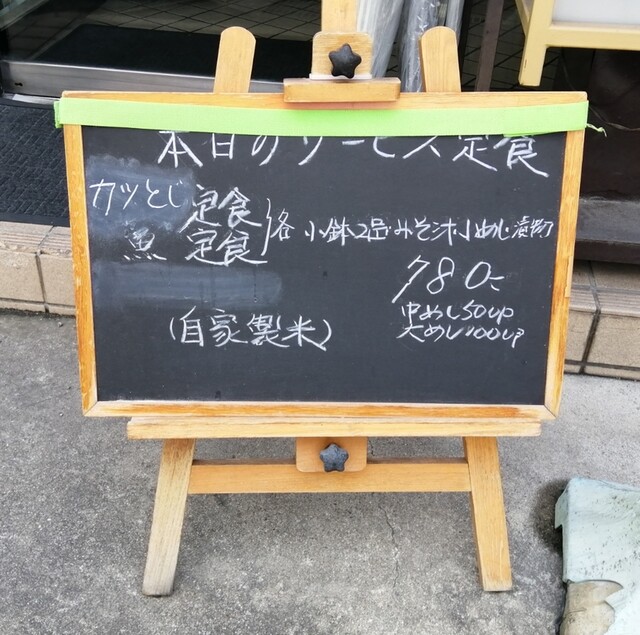 本日のサービス定食
カツとじ定食
魚 定食 各 小鉢2品・みそ汁・小めし・漬物
780-
中めし50up
大めし100up
(自家製米)